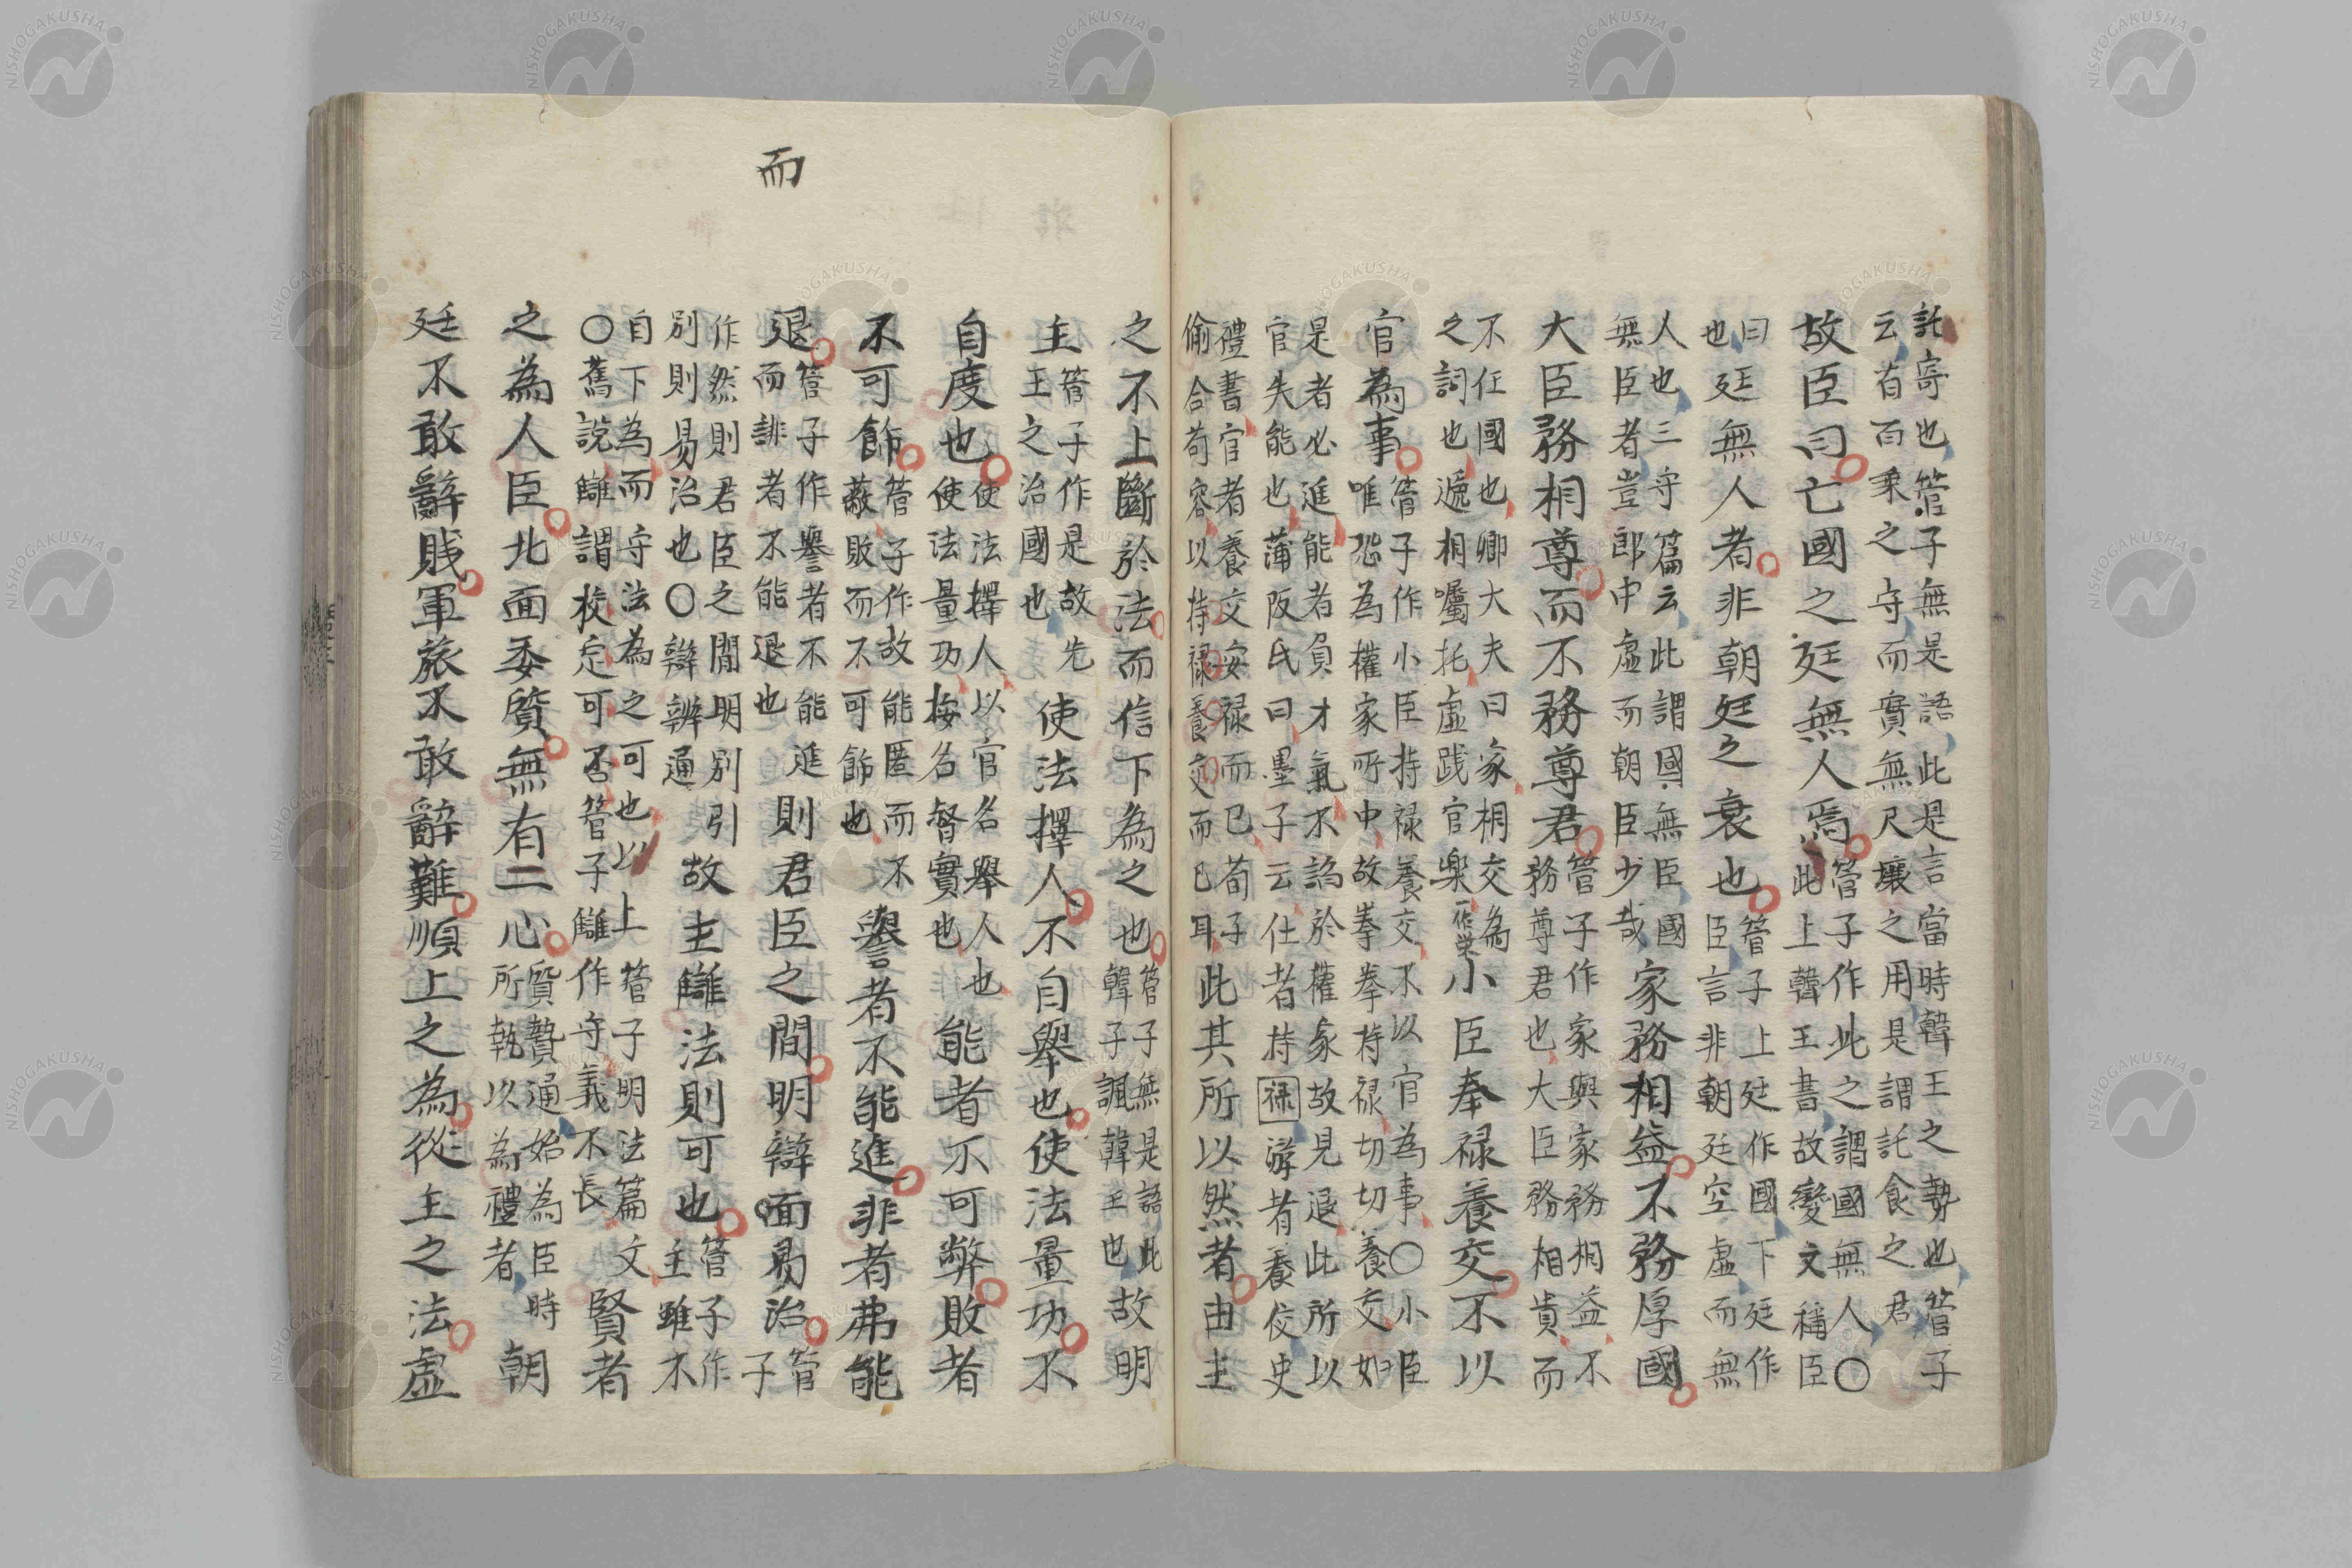 託寄也管子無是語此是言當時韓王之勢也管子
云有百乘之守而實無尺壤之用是謂託食之君
故臣曰亡國之廷無人焉管子作此之謂國無人〇
此上韓王書故變文稱臣
曰廷無人者非朝廷之衰也管子上廷作國下廷作
也臣言非朝廷空虛而無
人也三守篇云此謂國無臣國
無臣者豈郎中虛而朝臣少哉家務相益不務厚國
大臣務相尊而不務尊君管子作家與家務相益不
務尊君也大臣務相貴而
不任國也卿大夫曰家相交為
之詞也遞相囑托虛踐官樂一作榮小臣奉禄養交不以
官為事管子作小臣持禄養交不以官為事〇小臣
唯恐為權家所中故拳拳持禄切切養交如
是者必進能者負才氣不諂於權家故見退此所以
官失能也蒲阪氏曰墨子云仕者持禄游者養佼史
禮書官者養交安禄而已荀子
偷合苟容以持禄養交而已耳此其所以然者由主
之不上斷於法而信下為之也管子無是語此
韓子諷韓王也故明
主管子作是故先
王之治國也使法擇人不自舉也使法量功不
自度也使法擇人以官名舉人也
使法量功按名督實也能者不可弊敗者
不可飾管子作故能匿而不
蔽敗而不可飾也譽者不能進非者弗能
退管子作譽者不能進
而誹者不能退也則君臣之間明辯而易治管
子
作然則君臣之間明別
別則易治也〇辯辨通引故主讎法則可也管子作
主雖不
自下為而守法為之可也以上管子明法篇文
〇舊說讎謂校定可否管子讎作守義不長賢者
之為人臣北面委質無有二心質贄通始為臣時
所執以為禮者朝
廷不敢辭賤軍旅不敢辭難順上之為從主之法虛
而